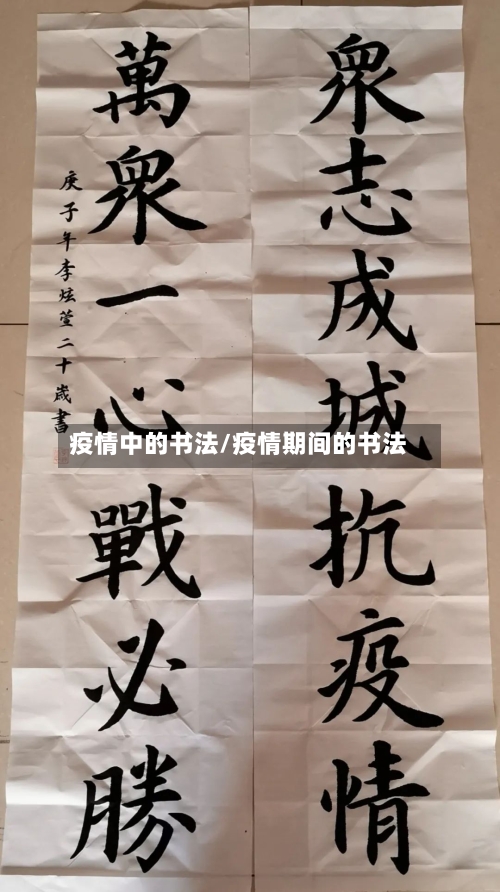 眾志成城抗疫情
萬眾一心戰必勝
庚子年李炫萱二十歲書
疫情中的书法/疫情期间的书法